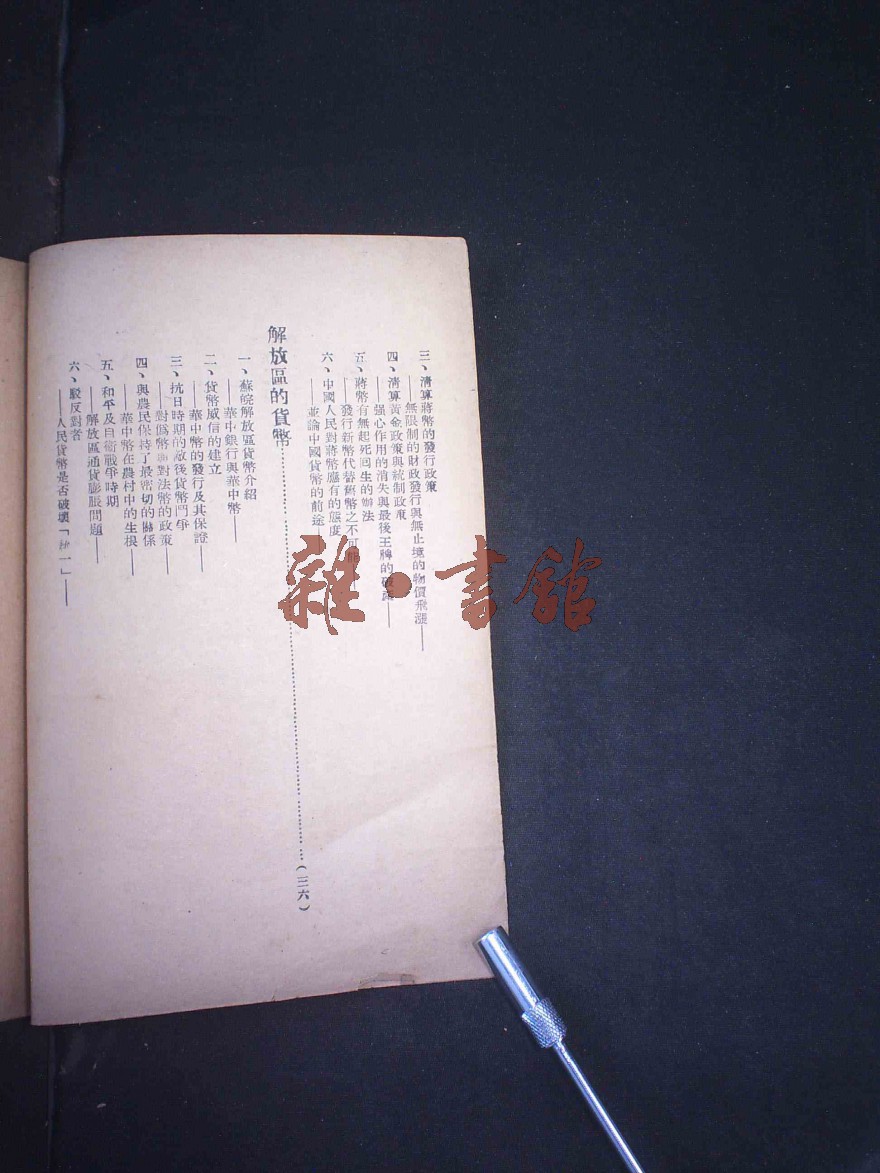 三、清算蔣幣的發行政策
——無限制的財政發行與無止境的物價飛漲——
四、清算黃金政策與統制政策
——强心作用的消失與最後王牌的破
五、蔣幣有無起死囘生的辦法
——發行新幣代替舊幣之不可
六、中國人民對蔣幣應有的態度
——並論中國貨幣的前途——
解放區的貨幣……(三六)
一、蘇皖解放區貨幣介紹
——華中銀行與華中幣——
二、貨幣威信的建立
——華中幣的發行及其保證——
三、抗日時期的敵後貨幣鬥爭
——對僞幣與對法幣的政策——
四、與農民保持了最密切的關係
——華中幣在農村中的生根——
五、和平及自衛戰爭時期
——解放區通貨膨脹問題——
六、駁反對者
——人民貨幣是否破壞「統一」——
雜·書館